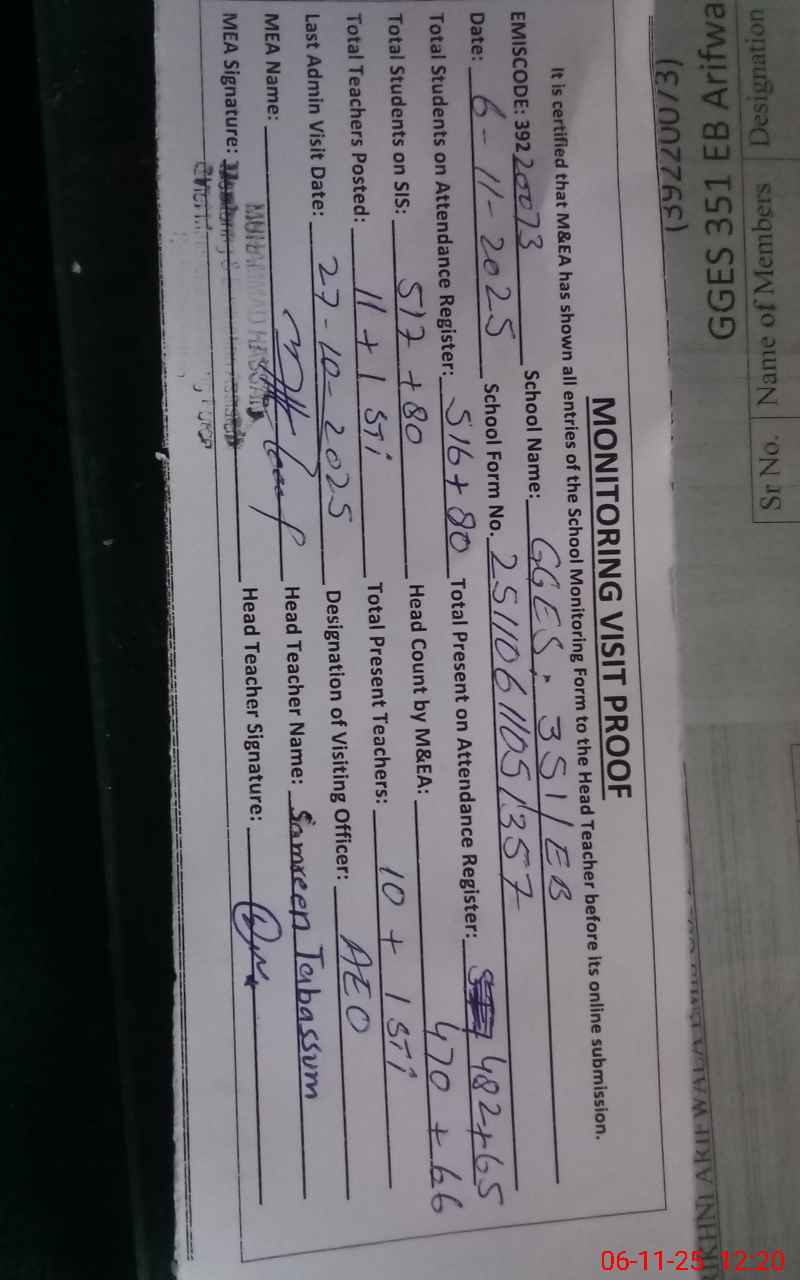 MONITORING VISIT PROOF
It is certified that M&EA has shown all entries of the School Monitoring Form to the Head Teacher before its online submission.
EMISCODE: 39220073 School Name: GGES. 351/EB
Date: 6-11-2025 School Form No. 25110611051357
Total Students on Attendance Register: 516+80 Total Present on Attendance Register: 482+65
Total Students on SIS: 517+80 Head Count by M&EA: 470+66
Total Teachers Posted: 11+1 STi Total Present Teachers: 10+1 STi
Last Admin Visit Date: 27-10-2025 Designation of Visiting Officer: AEO
MEA Name: Head Teacher Name: Samreen Tabassum
MEA Signature: Head Teacher Signature:
Sr No. Name of Members Designation
GGES 351 EB Arifwa
06-11-25 12:20